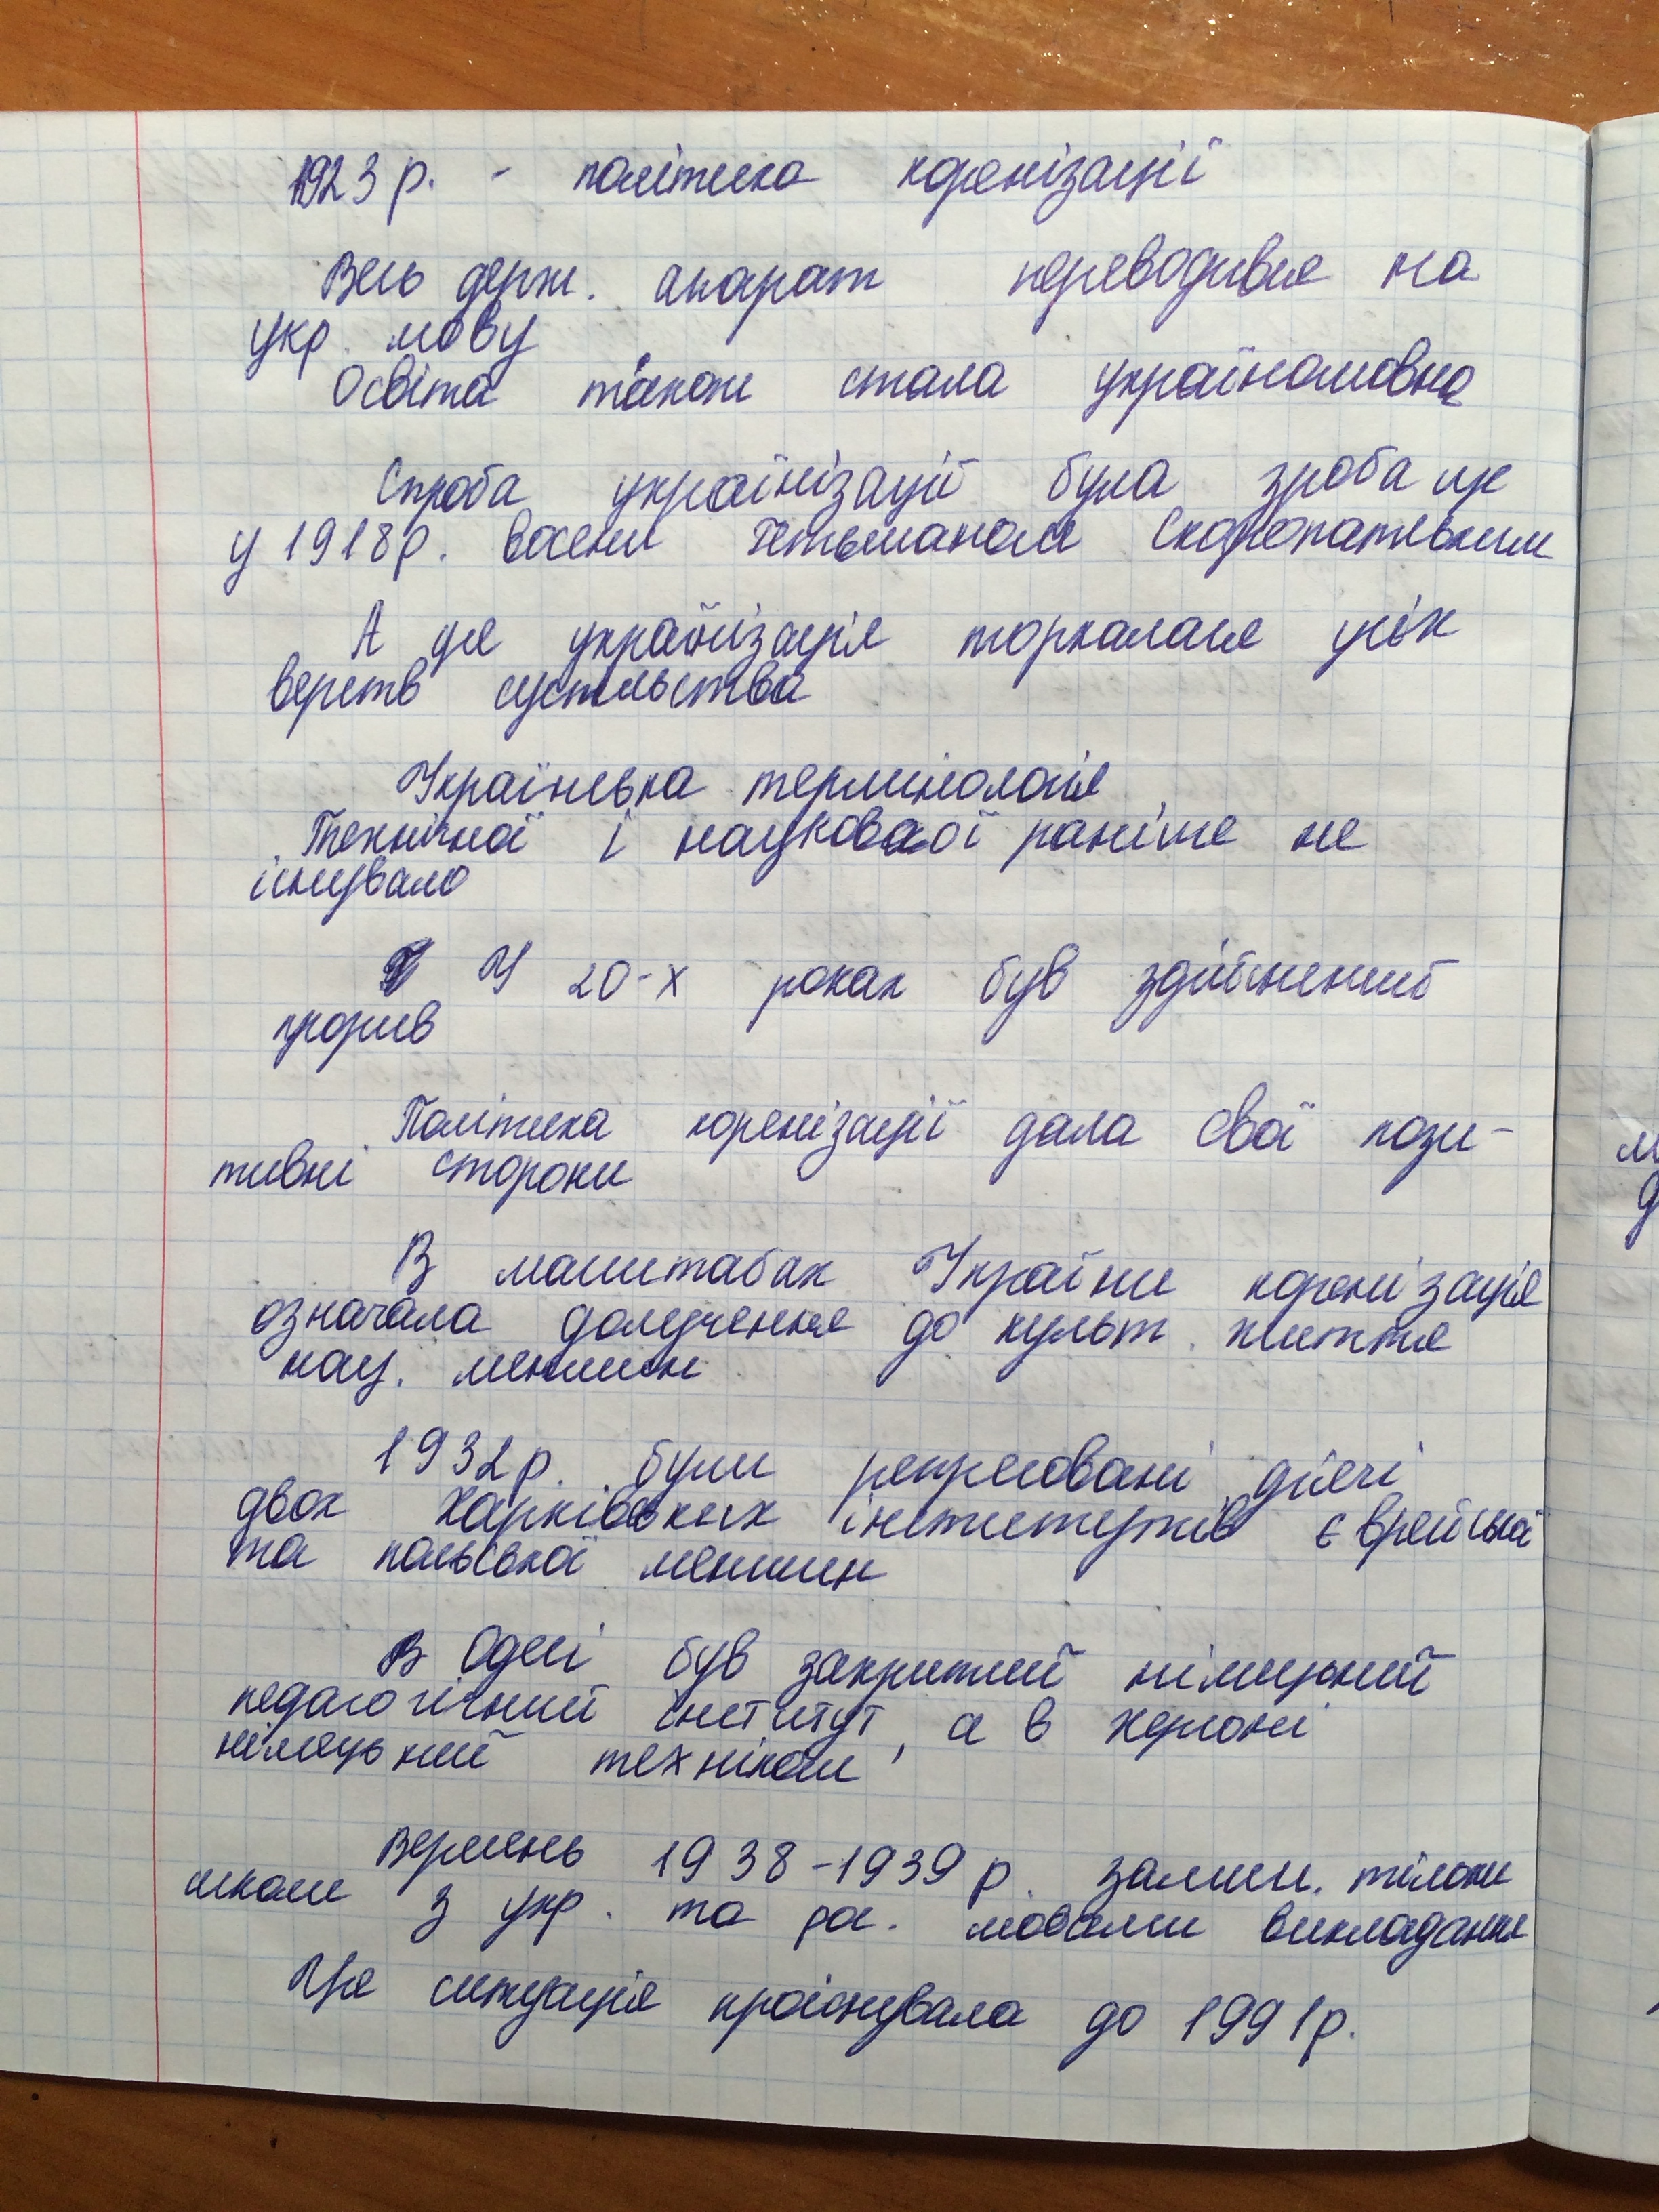 1923 р. - політика коренізації
Весь держ. апарат переводився на
укр. мову
Освіта також стала україномовна
Спроба українізації була зроба ще
у 1918 р. восени гетьманом Скоропатським
А ця українізація торкалася усіх
верств суспільства
Українська термінологія
Технічної і наукової раніше не
існувало
У 20-х роках був здійснений
прорив
Політика коренізації дала свої пози-
тивні сторони
В масштабах України коренізація
означала долучення до культ. життя
нац. меншин
1932 р. були репресовані діячі
двох харківських інститутів єврейської
та польської меншин
В Одесі був закритий німецький
педагогічний інститут, а в Херсоні
німецький технікам
Вересень 1938-1939 р. залиш. тільки
школи з укр. та рос. мовами викладання
Ця ситуація проіснувала до 1991 р.